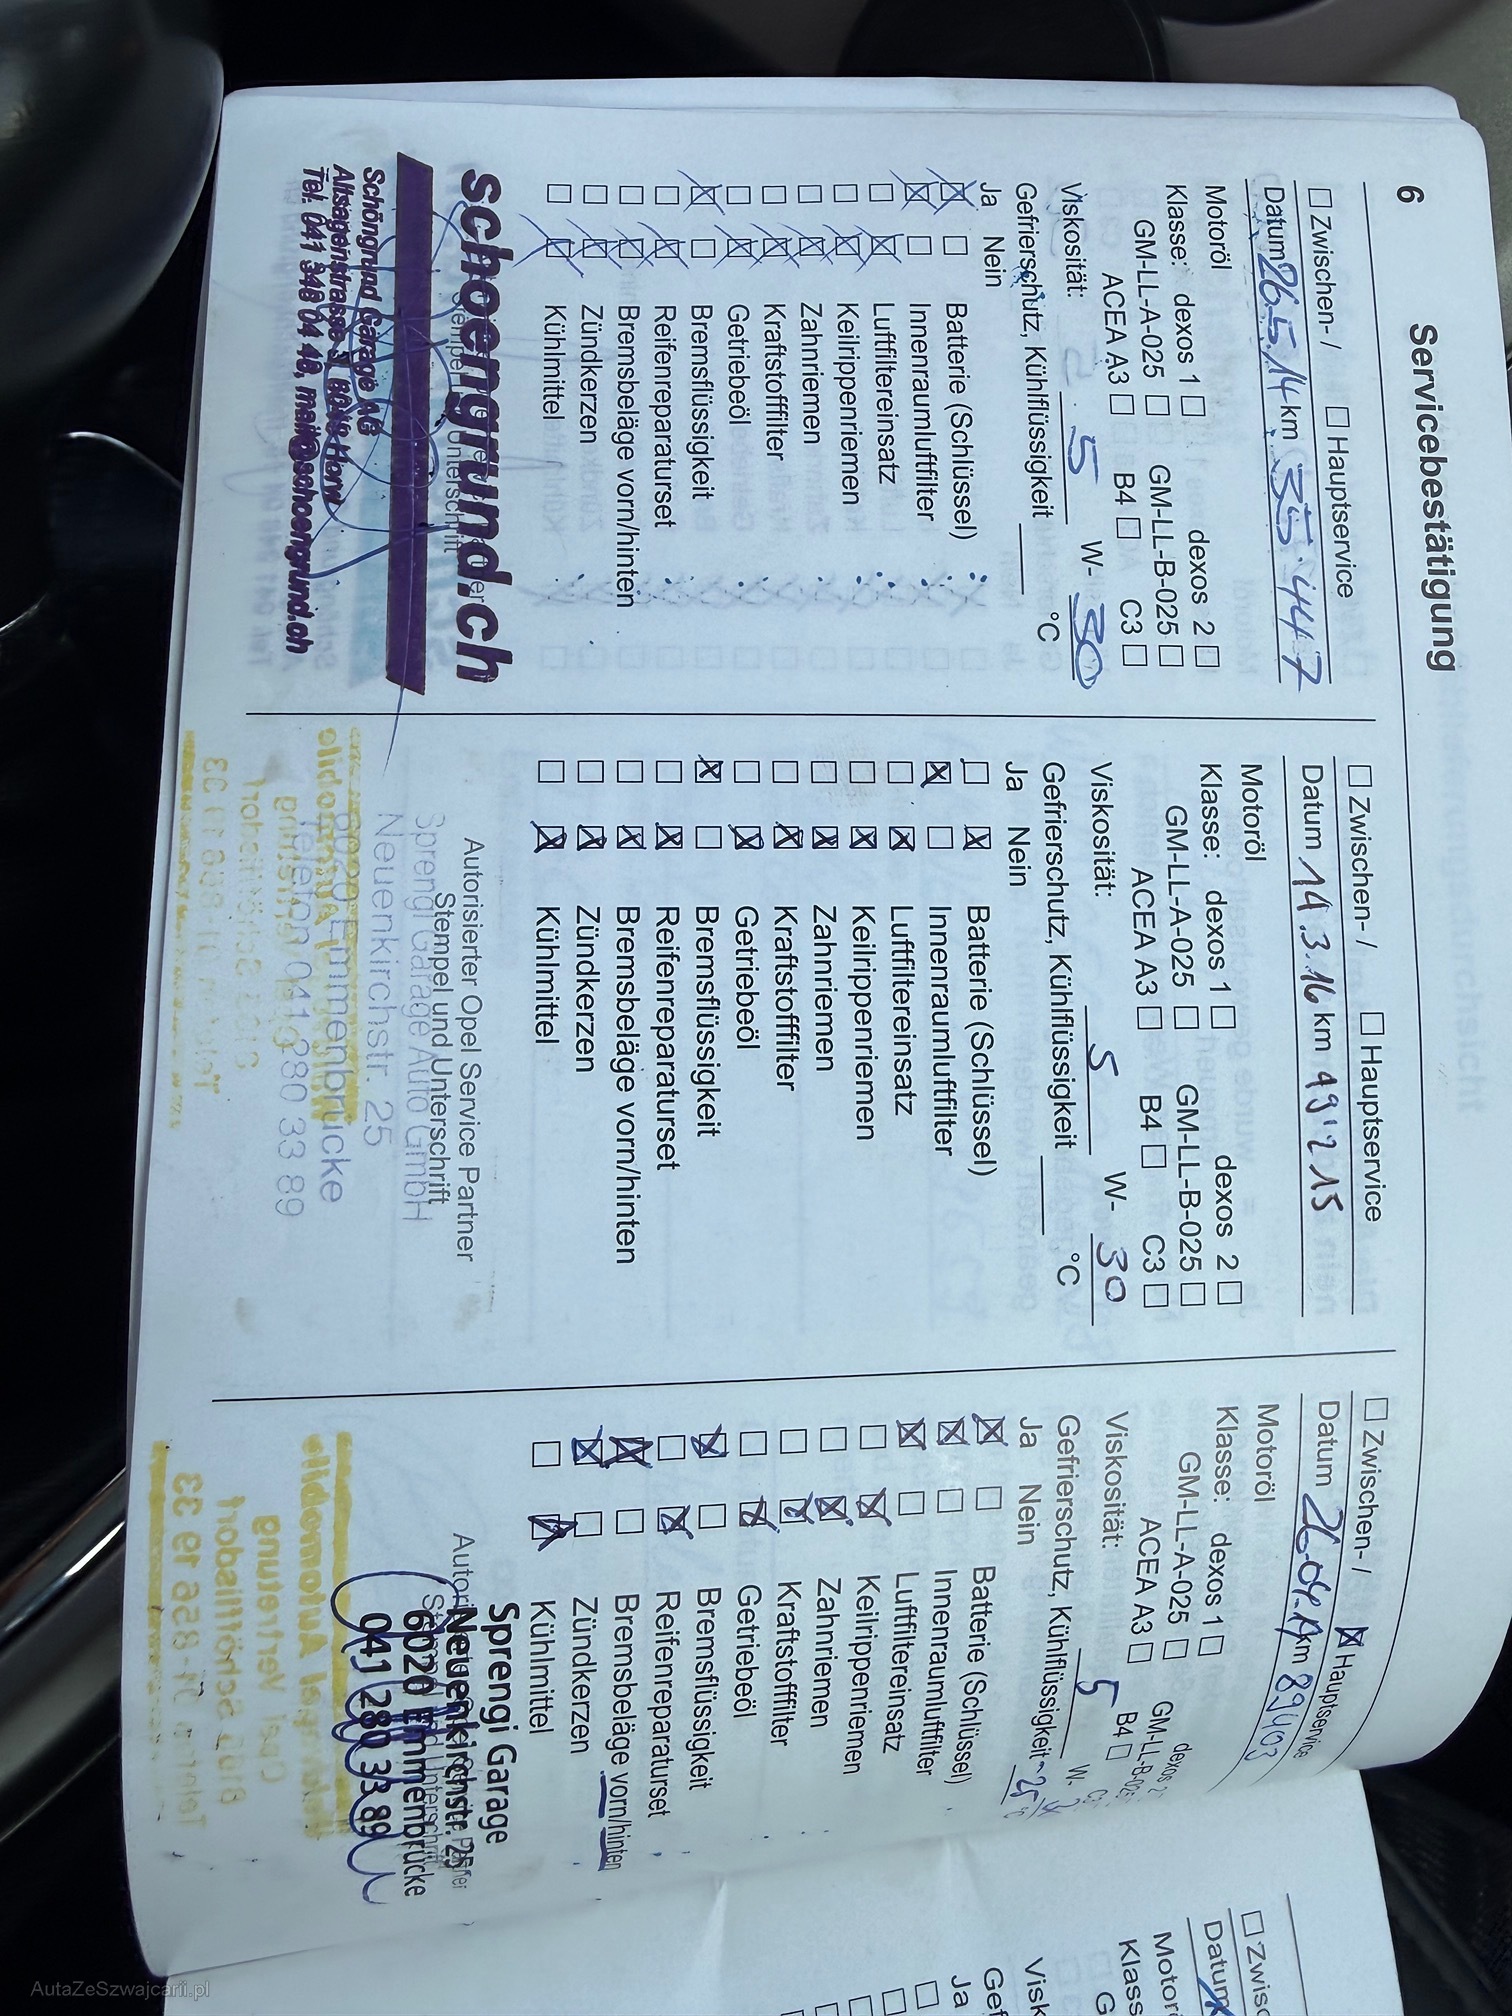 6
Servicebestätigung
☐ Zwischen- / ☐ Hauptservice
Datum 26.5.14 km 35'447
Motoröl
Klasse: dexos 1 ☐ dexos 2 ☐
GM-LL-A-025 ☐ GM-LL-B-025 ☐
ACEA A3 ☐ B4 ☐ C3 ☐
Viskosität: 5 W- 30
Gefrierschutz, Kühlflüssigkeit °C
Ja Nein
☒ ☐ Batterie (Schlüssel)
☒ ☐ Innenraumluftfilter
☐ ☒ Luftfiltereinsatz
☐ ☒ Keilrippenriemen
☐ ☒ Zahnriemen
☐ ☒ Kraftstofffilter
☐ ☒ Getriebeöl
☒ ☐ Bremsflüssigkeit
☐ ☒ Reifenreparaturset
☐ ☒ Bremsbeläge vorn/hinten
☐ ☒ Zündkerzen
☐ ☒ Kühlmittel
schoengrund.ch
Schöngrund Garage AG
Tel. 041 348 04 48, mail@schoengrund.ch
☐ Zwischen- / ☐ Hauptservice
Datum 14.3.16 km 49'215
Motoröl
Klasse: dexos 1 ☐ dexos 2 ☐
GM-LL-A-025 ☐ GM-LL-B-025 ☐
ACEA A3 ☐ B4 ☐ C3 ☐
Viskosität: 5 W- 30
Gefrierschutz, Kühlflüssigkeit °C
Ja Nein
☐ ☒ Batterie (Schlüssel)
☒ ☐ Innenraumluftfilter
☐ ☒ Luftfiltereinsatz
☐ ☒ Keilrippenriemen
☐ ☒ Zahnriemen
☐ ☒ Kraftstofffilter
☐ ☒ Getriebeöl
☒ ☐ Bremsflüssigkeit
☐ ☒ Reifenreparaturset
☐ ☒ Bremsbeläge vorn/hinten
☐ ☒ Zündkerzen
☐ ☒ Kühlmittel
Autorisierter Opel Service Partner
Stempel und Unterschrift
Sprengi Garage Auto GmbH
Neuenkirchstr. 25
6020 Emmenbrücke
Telefon 041 280 33 89
☐ Zwischen- / ☒ Hauptservice
Datum km 89403
Motoröl
Klasse: dexos 1 ☐ dexos 2
GM-LL-A-025 ☐ GM-LL-B-025
ACEA A3 ☐ B4 ☐
Viskosität: 5 W-
Gefrierschutz, Kühlflüssigkeit -25 °C
Ja Nein
☒ ☐ Batterie (Schlüssel)
☒ ☐ Innenraumluftfilter
☒ ☐ Luftfiltereinsatz
☐ ☒ Keilrippenriemen
☐ ☒ Zahnriemen
☐ ☒ Kraftstofffilter
☐ ☒ Getriebeöl
☒ ☐ Bremsflüssigkeit
☐ ☒ Reifenreparaturset
☒ ☐ Bremsbeläge vorn/hinten
☒ ☐ Zündkerzen
☐ ☒ Kühlmittel
Sprengi Garage
Neuenkirchstr. 25
6020 Emmenbrücke
041 280 33 89
☐ Zwisc
Datum
Motorö
Klass
G
Visk
Gef
Ja
AutaZeSzwajcarii.pl